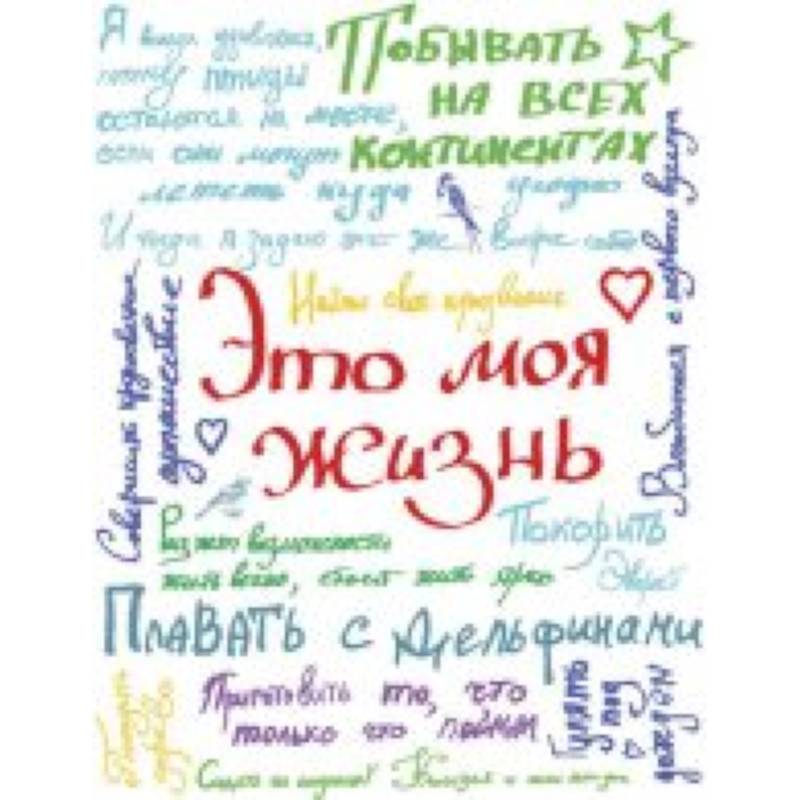 Я всегда удивлялся,
почему птицы
остаются на месте,
если они могут
летать куда угодно
И тогда я задаю тот же вопрос себе
Побывать
на всех
континентах
Влюбиться с первого взгляда
Найти свое призвание
Совершить кругосветное
путешествие
Это моя
жизнь
Раз нет возможности
жить вечно, стоит жить ярко
Покорить
Эверест
Плавать с дельфинами
Приготовить то, что
только что поймал
Гулять
под
дождем